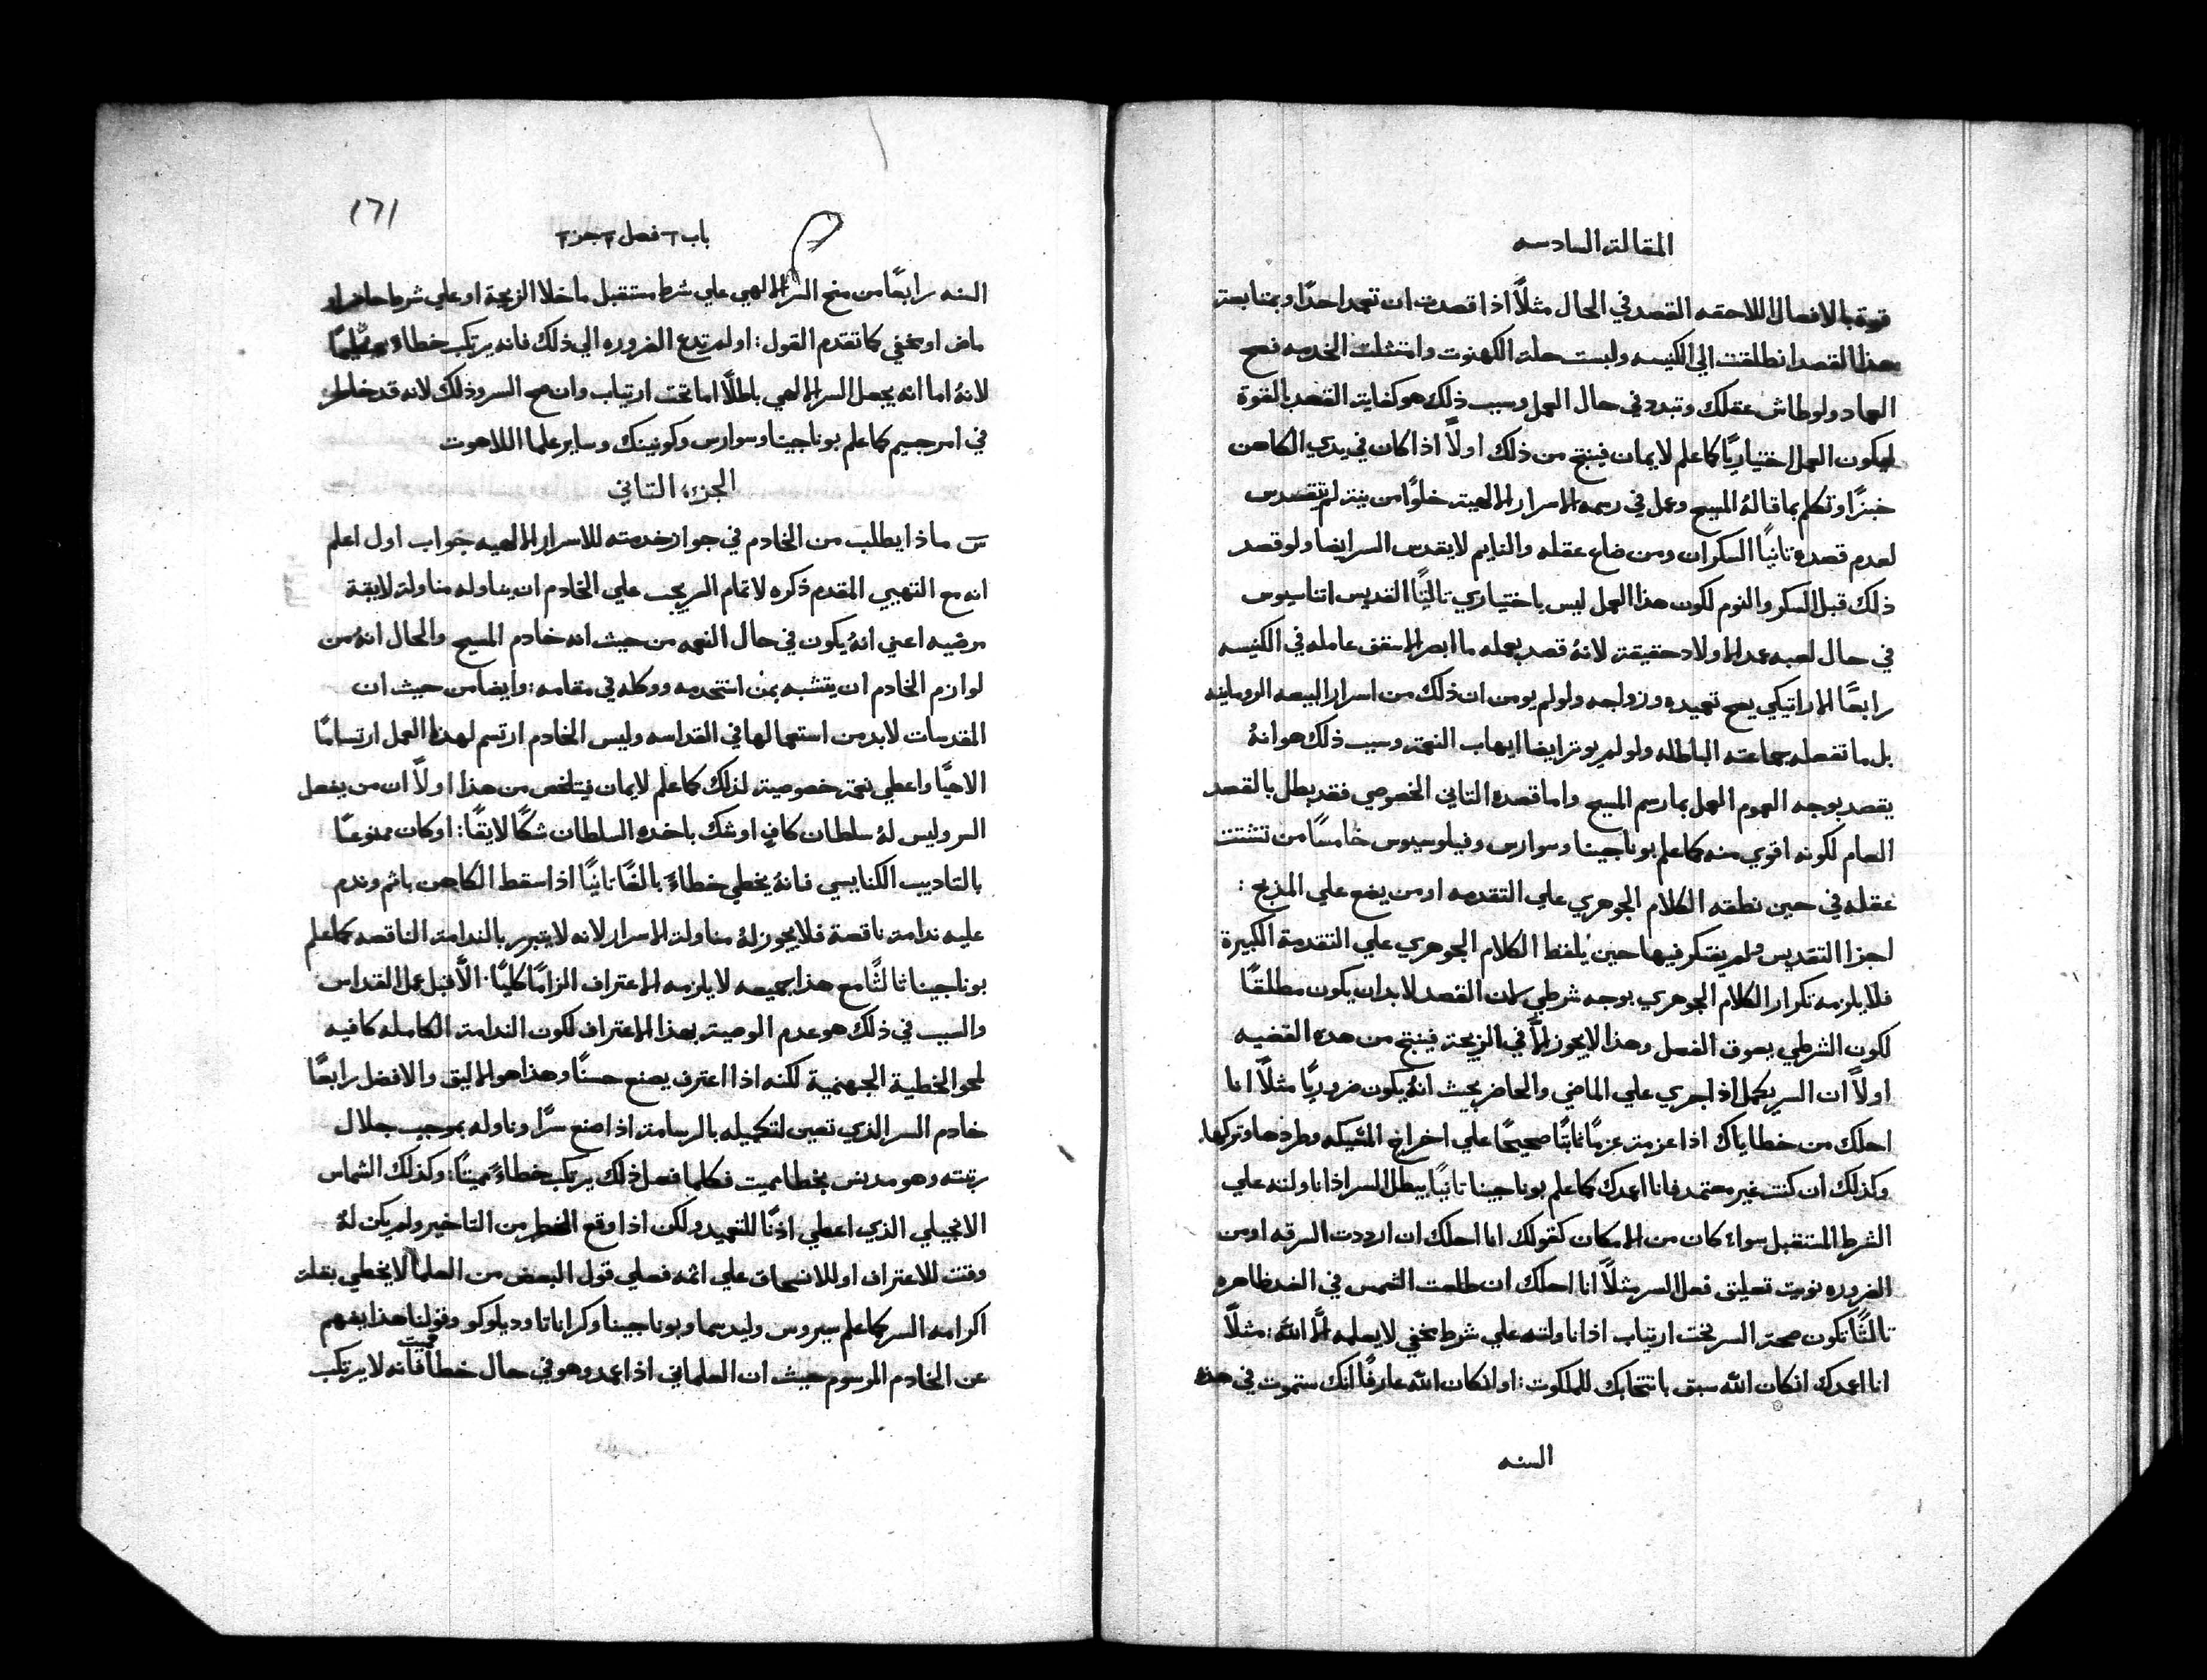 المقالة السادسه
قوية بالافعال اللاحقه القصد في الحال مثلًا اذا قصدت ان تعمد احدًا وبمتابعة
هذا القصد انطلقت الي الكنيسه ولبست حلة الكهنوت وامتثلت الخدمه فصح
العماد ولو طاش عقلك وتبدد في حال العمل وسبب ذلك هو كفاية القصد بالقوة
ليكون العمل اختياريًا كما علم لايمان فينتج من ذلك اولاً اذا كان في يدي الكاهن
خبزًا وتكلم بما قالهُ المسيح وعمل في رسمه الاسرار الالهية خلوًا من نية لم تتقدس
لعدم قصده تانيًا السكران ومن ضاع عقله والنايم لا يقدس السر ايضا ولو قصد
ذلك قبل السكر والنوم لكون هذا العمل ليس باختياري تالتًا القديس اتناسيوس
في حال لعبه عمد الاولاد حقيقة لانهُ قصد بعمله ما ابصر الاسقف عامله في الكنيسه
رابعًا الاراتيكي يصح تعميده وزواجه ولو لم يومن ان ذلك من اسرار البيعه الرومانيه
بل ما تفعله جماعته الباطله ولو لم يوتر ايضا ايهاب النعمة وسبب ذلك هو انهُ
يقصد بوجه العموم العمل بما رسم المسيح واما قصده التاني الخصوصي فقد بطل بالقصد
العام لكونه اقوي منه كما علم بوناجينا وسوارس وفيلوسيوس خامسًا من تشتت
عقله في حين نطقه الكلام الجوهري علي التقدمه او من يضع علي المذبح :
اجزا التقديس ولم يفتكر فيها حين يلفظ الكلام الجوهري علي التقدمة الكبيرة
فلا يلزمه تكرار الكلام الجوهري بوجه شرطي لان القصد لا بد ان يكون مطلقًا
لكون الشرطي يعوق الفعل وهذا لا يجوز الاَّ في الزيجة فينتج من هذه القضيه
اولاً ان السر يكمل اذا جري علي الماضي والحاضر بحيث انهُ يكون ضروريًا مثلًا انا
احلك من خطاياك اذا عزمت عزمًا تابتًا صحيحًا علي اخراج المتيكه وطردها وتركها
وكذلك ان كنت غير معتمد فانا اعمدك كما علم بوناجينا تانيًا يبطل السر اذا ناولته علي
الشرط المستقبل سواء كان من الامكان كقولك انا احلك ان ارددت السرقه او من
الضروره نويت تعليق فعل السر مثلًا انا احلك ان طلعت الشمس في الغد ظاهره
تالتًا تكون صحة السر تحت ارتياب اذا ناولته علي شرط مخفي لا يعلمه الاَّ الله : مثلًا
انا اعمدك ان كان الله سبق بانتخابك للملكوت : او ان كان الله عارفًا انك ستموت في هذه
السنه
١٦١
باب ٢ فصل ٢ جزء ٢
السنه رابعًا من منح السر الالهي علي شرط مستقبل ما خلا الزيجة او علي شرط حاضر او
ماض او مخفي كما تقدم القول : او لم تدع الضروره الي ذلك فانه يرتكب خطاءً
لانهُ اما انه يجعل السر الالهي باطلًا اما تحت ارتياب وان صح السر وذلك لانه قد خاطر
في امر جسيم كما علم بوناجينا وسوارس وكونينك وساير علما اللاهوت
الجزء التاني
س ماذا يطلب من الخادم في جواز خدمته للاسرار الالهيه جواب اول اعلم
انه مع التهيي المقدم ذكره لاتمام السر يجب علي الخادم ان يناوله مناولة لايقة
مرضيه اعني انهُ يكون في حال النعمه من حيث انه خادم المسيح والحال انهُ من
لوازم الخادم ان يتشبه بمن استخدمه ووكله في مقامه : وايضا من حيث ان
المقدسات لا بد من استعمالها في القداسه وليس الخادم ارتسم لهذا العمل ارتسامًا
الاهيًا واعطي نعمة خصوصية لذلك كما علم لايمان فيتلخص من هذا اولاً ان من يفعل
السر وليس لهُ سلطان كافٍ او شك باخده السلطان شكًا لايقًا : او كان ممنوعًا
بالتاديب الكنايسي فانهُ يخطي خطاءً بالغًا تانيًا اذا سقط الكاهن باثم وندم
عليه ندامة ناقصة فلا يجوز لهُ مناولة الاسرار لانه لا يتبرر بالندامة الناقصه كما علم
بوناجينا تالتًا مع هذا جميعه لا يلزمه الاعتراف الزامًا كليًا الاَّ قبل عمل القداس
والسبب في ذلك هو عدم الوصية بهذا الاعتراف لكون الندامة الكامله كافيه
لمحو الخطية الجهنمية لكنه اذا اعترف يصنع حسنًا وهذا هو الاليق والافضل رابعًا
خادم السر الذي تعين لتكميله بالرسامة اذا صنع سرًا وناوله بموجب جلال
رتبته وهو مدنس بخطا مميت فكلما فعل ذلك يرتكب خطاءً مميتًا : وكذلك الشماس
الانجيلي الذي اعطي اذنًا للتعميد ولكن اذا وقع الخطر من التاخير ولم يكن لهُ
وقت للاعتراف او للانسحاق علي اثمه فعلي قول البعض من العلما لا يخطي بقلة
اكرامه السر كما علم سيروس وليدسما وبوناجينا وكراناتا وديلوكو وقولنا هذا يفهم
عن الخادم المرسوم حيث ان العلماني اذا عمد وهو في حال خطا مميت فانه لا يرتكب